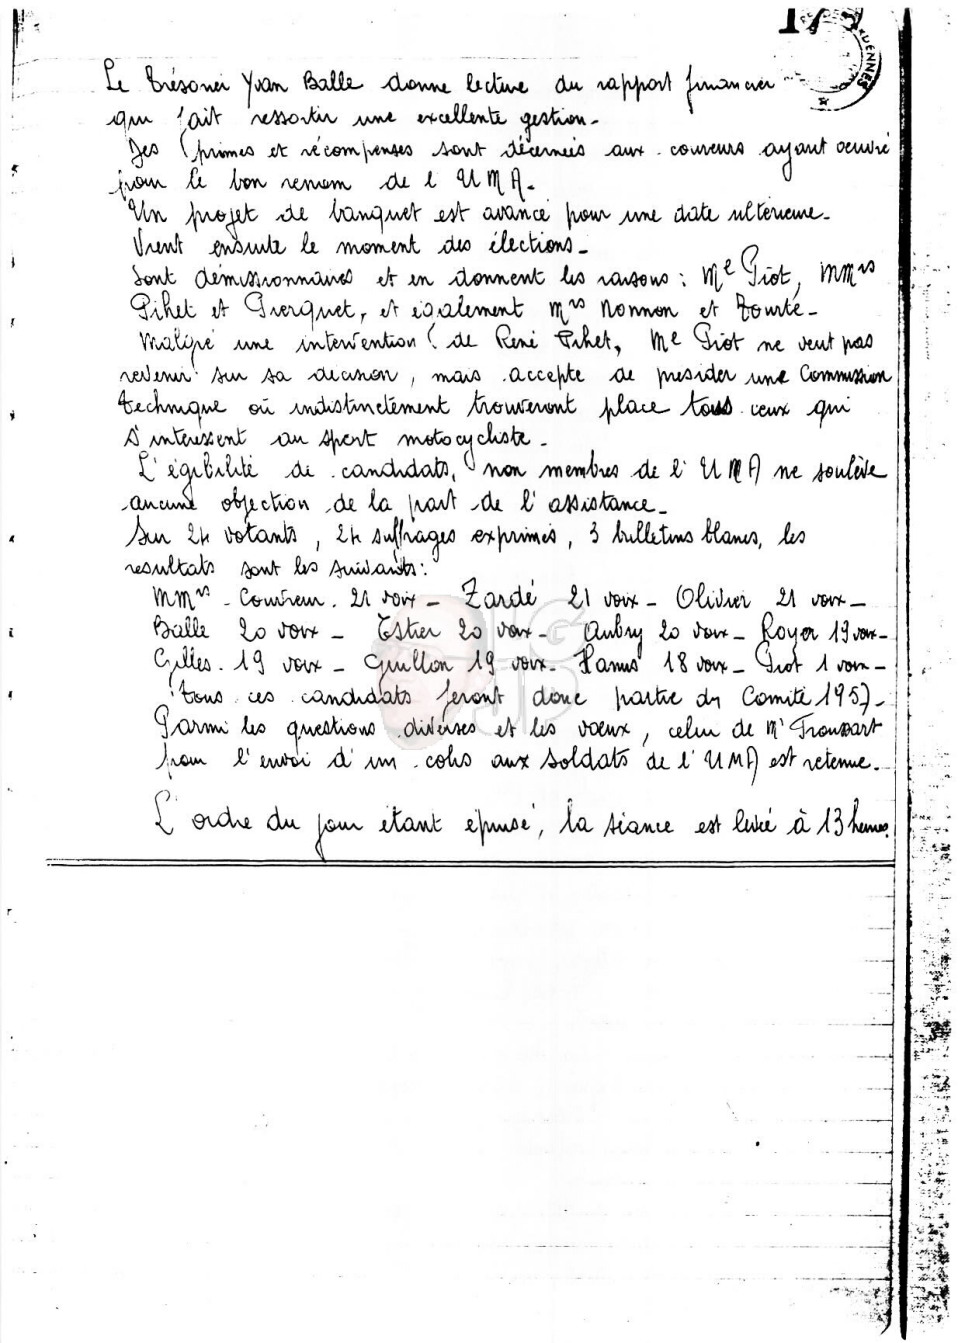 17
ARDENNES
Le trésorier Yvan Balle donne lecture du rapport financier
qui fait ressortir une excellente gestion_
Des primes et récompenses sont décernées aux coureurs ayant oeuvré
pour le bon renom de l'UMA_
Un projet de banquet est avancé pour une date ultérieure_
Vient ensuite le moment des élections_
Sont démissionnaires et en donnent les raisons : Me Giot, MMrs
Pihet et Pierquet, et également Mrs Nonnon et Tourté_
Malgré une intervention de René Pihet, Me Giot ne veut pas
revenir sur sa décision, mais accepte de présider une Commission
technique où indistinctement trouveront place tous ceux qui
s'intéressent au sport motocycliste_
L'égibilité de candidats, non membres de l'UMA ne soulève
aucune objection de la part de l'assistance_
Sur 24 votants, 24 suffrages exprimés, 3 bulletins blancs, les
resultats sont les suivants :
MMrs Couvreur 21 voix _ Zardé 21 voix _ Olivier 21 voix _
Balle 20 voix _ Estier 20 voix _ Aubry 20 voix _ Royer 19 voix _
Gilles 19 voix _ Guillon 19 voix _ Hanus 18 voix _ Giot 1 voix _
tous ces candidats feront donc partie du Comité 1957_
Parmi les questions diverses et les voeux, celui de Mr Troussart
pour l'envoi d'un colis aux soldats de l'UMA est retenue_
L'ordre du jour étant épuisé, la séance est levée à 13 heures.